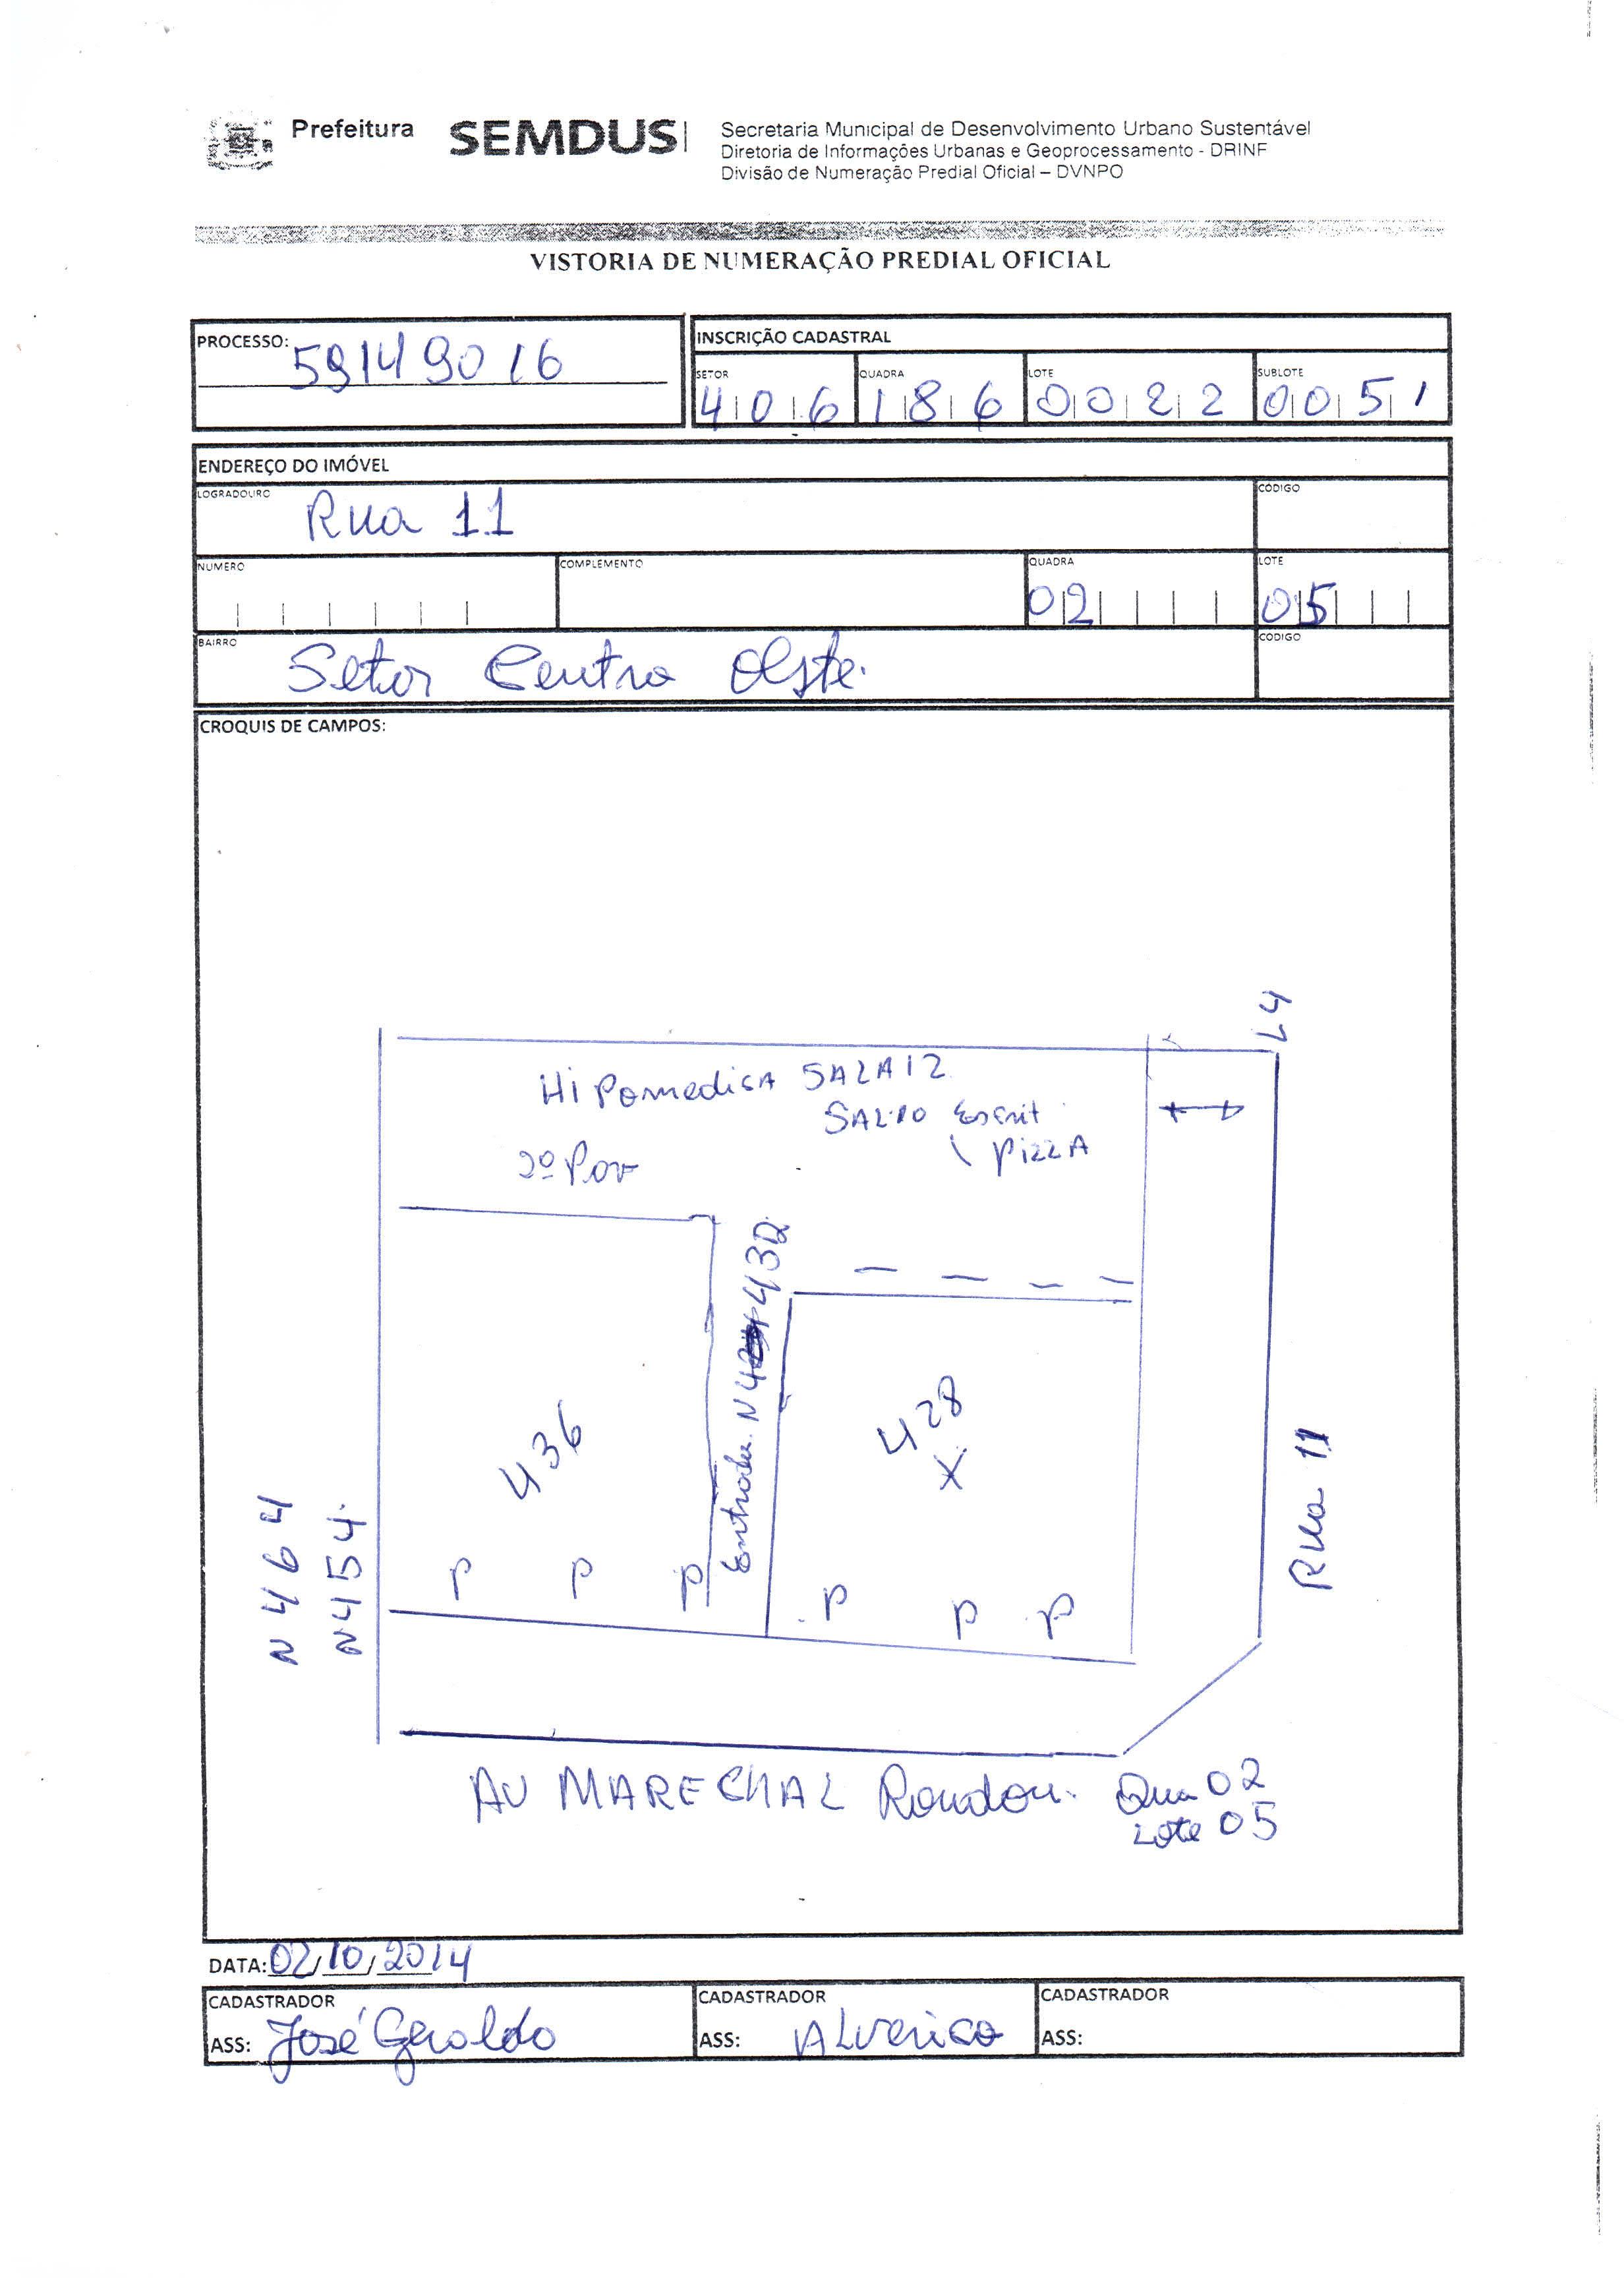 Prefeitura SEMDUS
Secretaria Municipal de Desenvolvimento Urbano Sustentável
Diretoria de Informações Urbanas e Geoprocessamento - DRINF
Divisão de Numeração Predial Oficial – DVNPO
VISTORIA DE NUMERAÇÃO PREDIAL OFICIAL
PROCESSO: 59149016
INSCRIÇÃO CADASTRAL
SETOR QUADRA LOTE SUBLOTE
406 186 0022 0051
ENDEREÇO DO IMÓVEL
LOGRADOURO Rua 11 CÓDIGO
NUMERO COMPLEMENTO QUADRA 02 LOTE 05
BAIRRO Setor Centro Oeste. CODIGO
CROQUIS DE CAMPOS:
L4
Hipomedica SALA12
SAL10 Escrit
PIZZA
2º Pav
Entrada N 432
436
428
X
N 464
N454.
Rua 11
P P P P P P
AV MARECHAL Rondon.
Qua 02
Lote 05
DATA: 02/10/2014
CADASTRADOR CADASTRADOR CADASTRADOR
ASS: José Geraldo ASS: Alverico ASS: